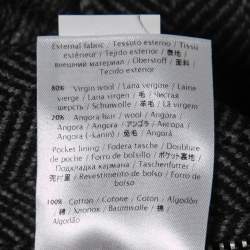 External fabric / Tessuto esterno / Tissu
extérieur / Tejido exterior / 表地 /
внешний материал / Oberstoff / 面料 /
Tecido exterior
80% Virgin wool / Lana vergine / Laine
vierge / Lana virgen / 毛 / Чистая
шерсть / Schurwolle / 羊毛 / Lã virgem
20% Angora hair / wool / Angora
Angora / アンゴラ / Ангора /
Angora (-kanin) / 兔毛 / Angora
Pocket lining / Fodera tasche / Doublure
de poche / Forro de bolsillo / ポケット裏地
Подкладка кармана / Taschenfutter
/ Revestimento de bolso / Forro
100% Cotton / Cotone / Coton / Algodón
綿 / Хлопок / Baumwolle / 棉
Algodão